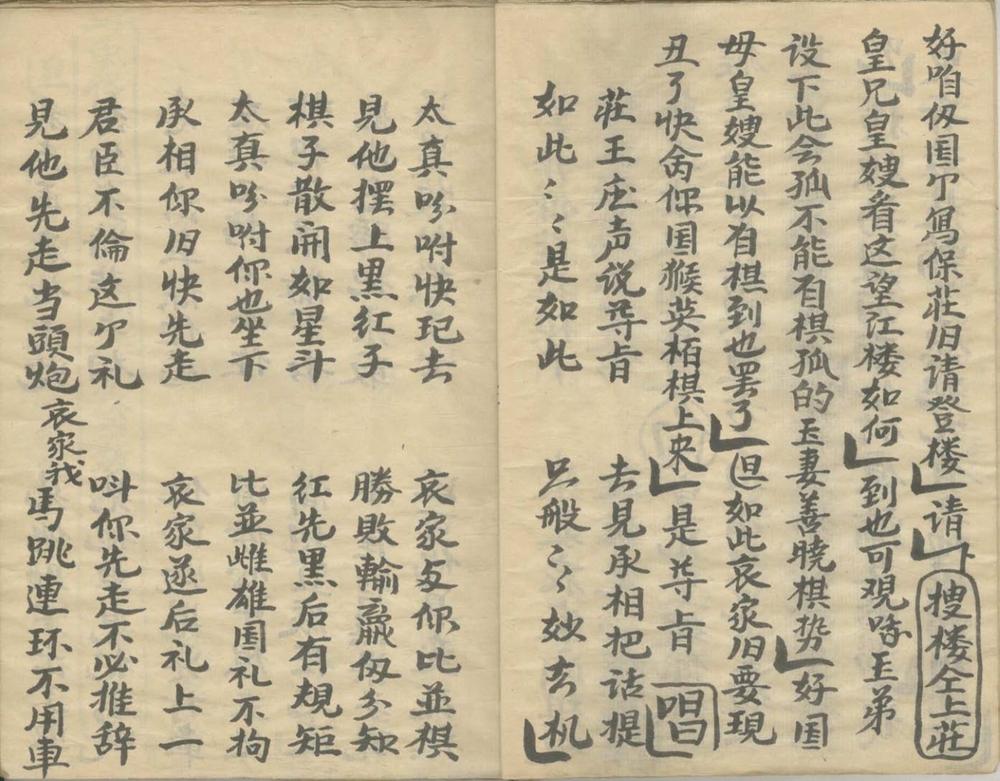 好咱伋国卩寫保莊旧请登楼请 搜楼仝上莊
皇兄皇嫂看这望江楼如何到也可观呀王弟
设下此会孤不能自棋孤的玉妻善晓棋势好国
母皇嫂能以自棋到也罢了但如此哀家旧要現
丑了快命你国猴英栢棋上来是㝵旨唱
莊王应声说㝵旨 去見承相把话提
如此〻〻是如此 只般〻〻妙去机
太真吩咐快玘去 哀家与你比並棋
見他摆上黑红子 勝敗輸贏伋分知
棋子散開如星斗 红先黒后有規矩
太真吩咐你也坐下 比並雌雄国礼不拘
承相你旧快先走 哀家逐后礼上一
君臣不倫这卩礼 叫你先走不必推辞
見他先走当頭炮 哀家我馬跳連环不用車